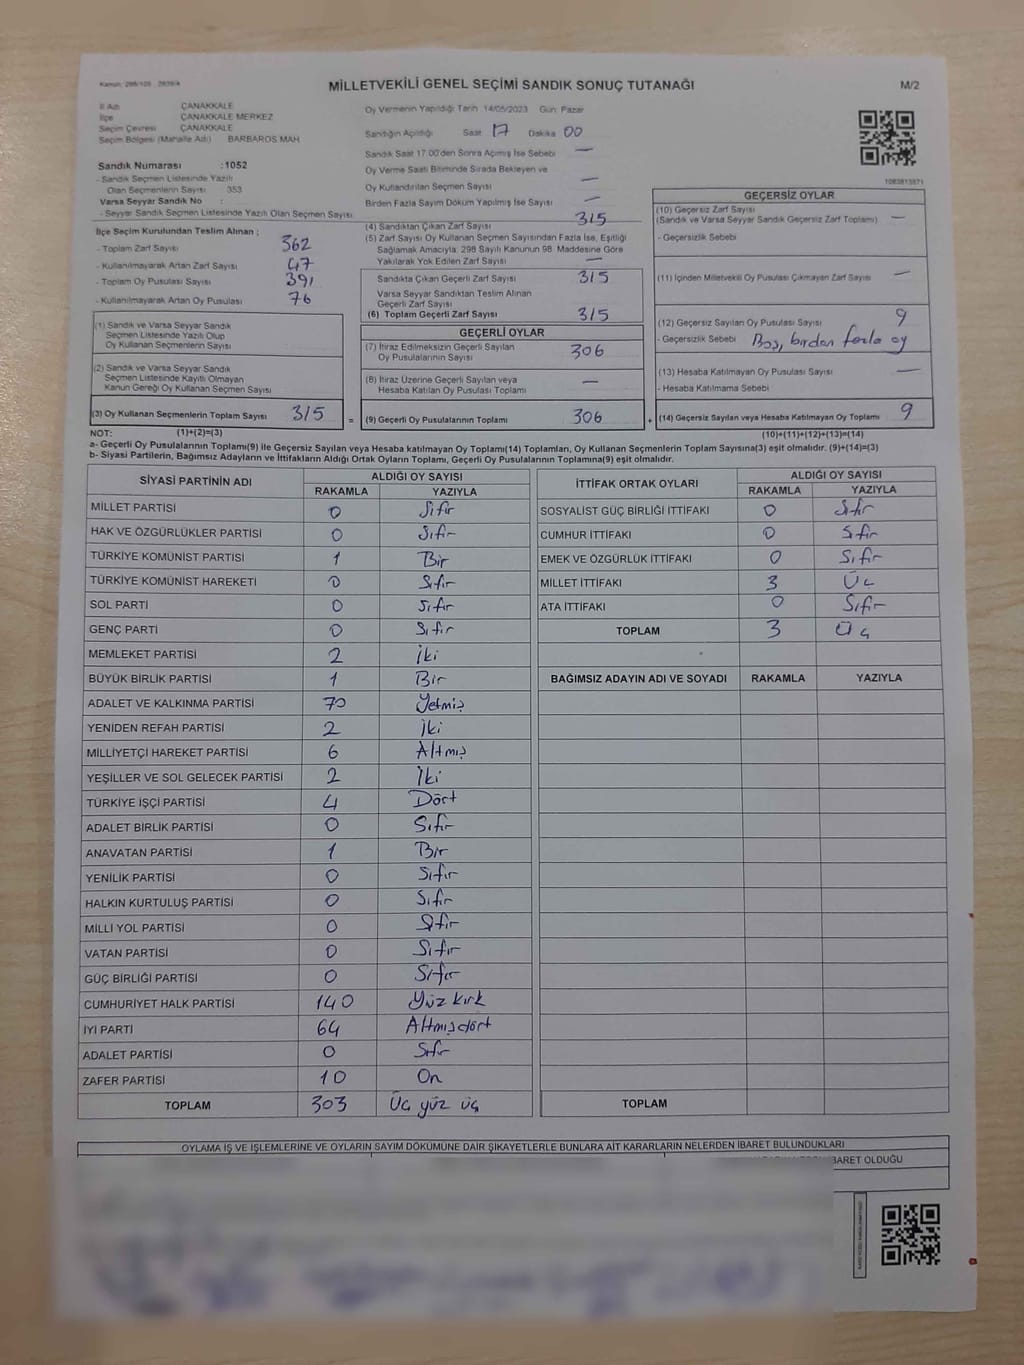 MİLLETVEKİLİ GENEL SEÇİMİ SANDIK SONUÇ TUTANAĞI
M/2
İl Adı ÇANAKKALE
İlçe ÇANAKKALE MERKEZ
Seçim Çevresi ÇANAKKALE
Seçim Bölgesi (Mahalle Adı) BARBAROS MAH
Sandık Numarası :1052
- Sandık Seçmen Listesinde Yazılı
Olan Seçmenlerin Sayısı 353
Varsa Seyyar Sandık No :
- Seyyar Sandık Seçmen Listesinde Yazılı Olan Seçmen Sayısı
İlçe Seçim Kurulundan Teslim Alınan ;
- Toplam Zarf Sayısı 362
- Kullanılmayarak Artan Zarf Sayısı 47
- Toplam Oy Pusulası Sayısı 391
- Kullanılmayarak Artan Oy Pusulası 76
(1) Sandık ve Varsa Seyyar Sandık
Seçmen Listesinde Yazılı Olup
Oy Kullanan Seçmenlerin Sayısı
(2) Sandık ve Varsa Seyyar Sandık
Seçmen Listesinde Kayıtlı Olmayan
Kanun Gereği Oy Kullanan Seçmen Sayısı
(3) Oy Kullanan Seçmenlerin Toplam Sayısı 315 =
Oy Vermenin Yapıldığı Tarih 14/05/2023 Gün: Pazar
Sandığın Açıldığı Saat 17 Dakika 00
Sandık Saat 17:00'den Sonra Açılmış İse Sebebi —
Oy Verme Saati Bitiminde Sırada Bekleyen ve
Oy Kullandırılan Seçmen Sayısı —
Birden Fazla Sayım Döküm Yapılmış İse Sayısı —
(4) Sandıktan Çıkan Zarf Sayısı 315
(5) Zarf Sayısı Oy Kullanan Seçmen Sayısından Fazla İse, Eşitliği
Sağlamak Amacıyla; 298 Sayılı Kanunun 98. Maddesine Göre
Yakılarak Yok Edilen Zarf Sayısı —
Sandıkta Çıkan Geçerli Zarf Sayısı 315
Varsa Seyyar Sandıktan Teslim Alınan
Geçerli Zarf Sayısı
(6) Toplam Geçerli Zarf Sayısı 315
GEÇERLİ OYLAR
(7) İtiraz Edilmeksizin Geçerli Sayılan
Oy Pusulalarının Sayısı 306
(8) İtiraz Üzerine Geçerli Sayılan veya
Hesaba Katılan Oy Pusulası Toplamı —
(9) Geçerli Oy Pusulalarının Toplamı 306 +
GEÇERSİZ OYLAR
(10) Geçersiz Zarf Sayısı
(Sandık ve Varsa Seyyar Sandık Geçersiz Zarf Toplamı) —
- Geçersizlik Sebebi
(11) İçinden Milletvekili Oy Pusulası Çıkmayan Zarf Sayısı —
(12) Geçersiz Sayılan Oy Pusulası Sayısı 9
- Geçersizlik Sebebi Boş, birden fazla oy
(13) Hesaba Katılmayan Oy Pusulası Sayısı —
- Hesaba Katılmama Sebebi
(14) Geçersiz Sayılan veya Hesaba Katılmayan Oy Toplamı 9
NOT: (1)+(2)=(3) (10)+(11)+(12)+(13)=(14)
a- Geçerli Oy Pusulalarının Toplamı(9) ile Geçersiz Sayılan veya Hesaba katılmayan Oy Toplamı(14) Toplamları, Oy Kullanan Seçmenlerin Toplam Sayısına(3) eşit olmalıdır. (9)+(14)=(3)
b- Siyasi Partilerin, Bağımsız Adayların ve İttifakların Aldığı Ortak Oyların Toplamı, Geçerli Oy Pusulalarının Toplamına(9) eşit olmalıdır.
SİYASİ PARTİNİN ADI ALDIĞI OY SAYISI
RAKAMLA YAZIYLA
MİLLET PARTİSİ 0 Sıfır
HAK VE ÖZGÜRLÜKLER PARTİSİ 0 Sıfır
TÜRKİYE KOMÜNİST PARTİSİ 1 Bir
TÜRKİYE KOMÜNİST HAREKETİ 0 Sıfır
SOL PARTİ 0 Sıfır
GENÇ PARTİ 0 Sıfır
MEMLEKET PARTİSİ 2 İki
BÜYÜK BİRLİK PARTİSİ 1 Bir
ADALET VE KALKINMA PARTİSİ 70 Yetmiş
YENİDEN REFAH PARTİSİ 2 İki
MİLLİYETÇİ HAREKET PARTİSİ 6 Altmış
YEŞİLLER VE SOL GELECEK PARTİSİ 2 İki
TÜRKİYE İŞÇİ PARTİSİ 4 Dört
ADALET BİRLİK PARTİSİ 0 Sıfır
ANAVATAN PARTİSİ 1 Bir
YENİLİK PARTİSİ 0 Sıfır
HALKIN KURTULUŞ PARTİSİ 0 Sıfır
MİLLİ YOL PARTİSİ 0 Sıfır
VATAN PARTİSİ 0 Sıfır
GÜÇ BİRLİĞİ PARTİSİ 0 Sıfır
CUMHURİYET HALK PARTİSİ 140 Yüz kırk
İYİ PARTİ 64 Altmışdört
ADALET PARTİSİ 0 Sıfır
ZAFER PARTİSİ 10 On
TOPLAM 303 Üç yüz üç
İTTİFAK ORTAK OYLARI ALDIĞI OY SAYISI
RAKAMLA YAZIYLA
SOSYALİST GÜÇ BİRLİĞİ İTTİFAKI 0 Sıfır
CUMHUR İTTİFAKI 0 Sıfır
EMEK VE ÖZGÜRLÜK İTTİFAKI 0 Sıfır
MİLLET İTTİFAKI 3 Üç
ATA İTTİFAKI 0 Sıfır
TOPLAM 3 Üç
BAĞIMSIZ ADAYIN ADI VE SOYADI RAKAMLA YAZIYLA
TOPLAM
OYLAMA İŞ VE İŞLEMLERİNE VE OYLARIN SAYIM DÖKÜMÜNE DAİR ŞİKAYETLERLE BUNLARA AİT KARARLARIN NELERDEN İBARET BULUNDUKLARI
OLDUĞU